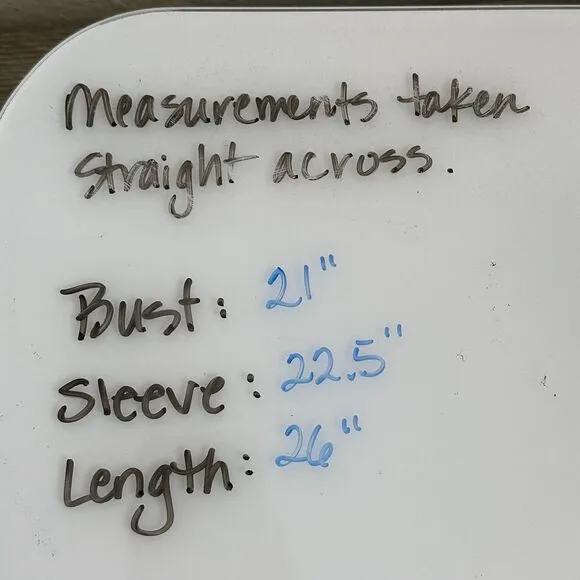 Measurements taken
straight across.
Bust: 21"
Sleeve: 22.5"
Length: 26"